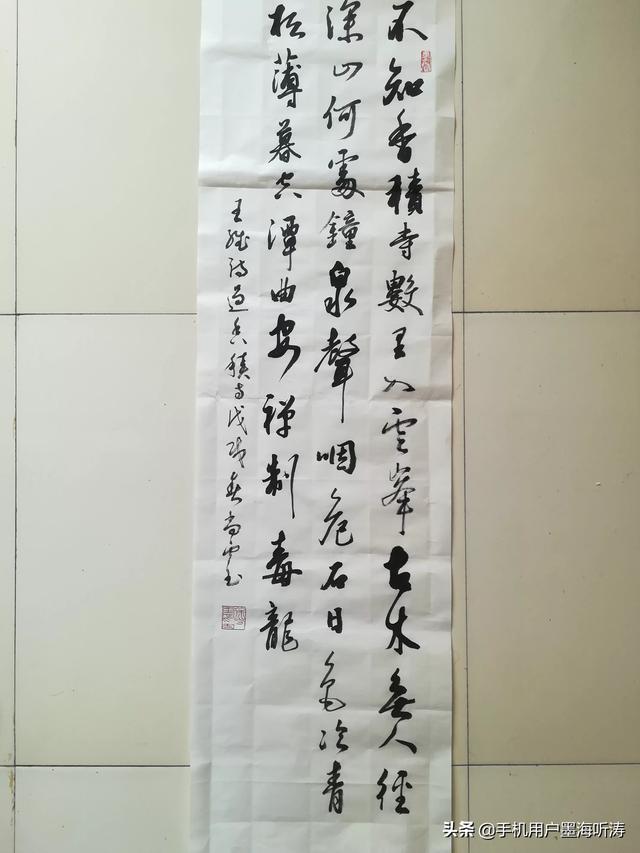 不知香積寺數里入雲峯古木無人徑
深山何處鐘泉聲咽危石日色冷青
松薄暮空潭曲安禪制毒龍
王維詩過香積寺戊戌春尚
头条 @手机用户墨海听涛